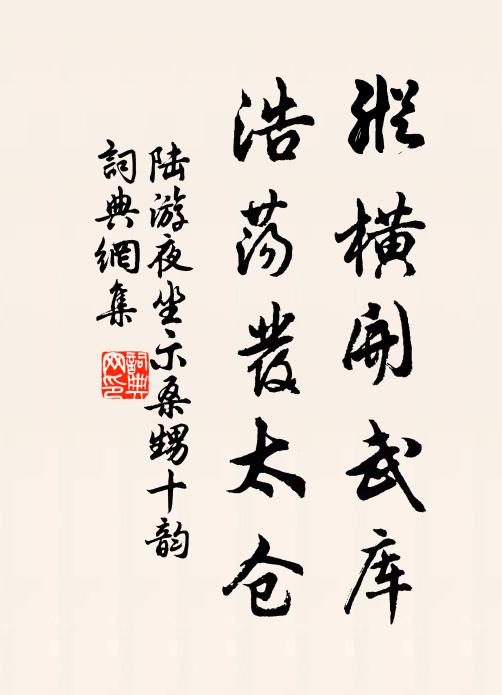 縱橫開武库
浩荡發太仓
陆游夜坐示桑甥十韵
詞典網集
詞典网印